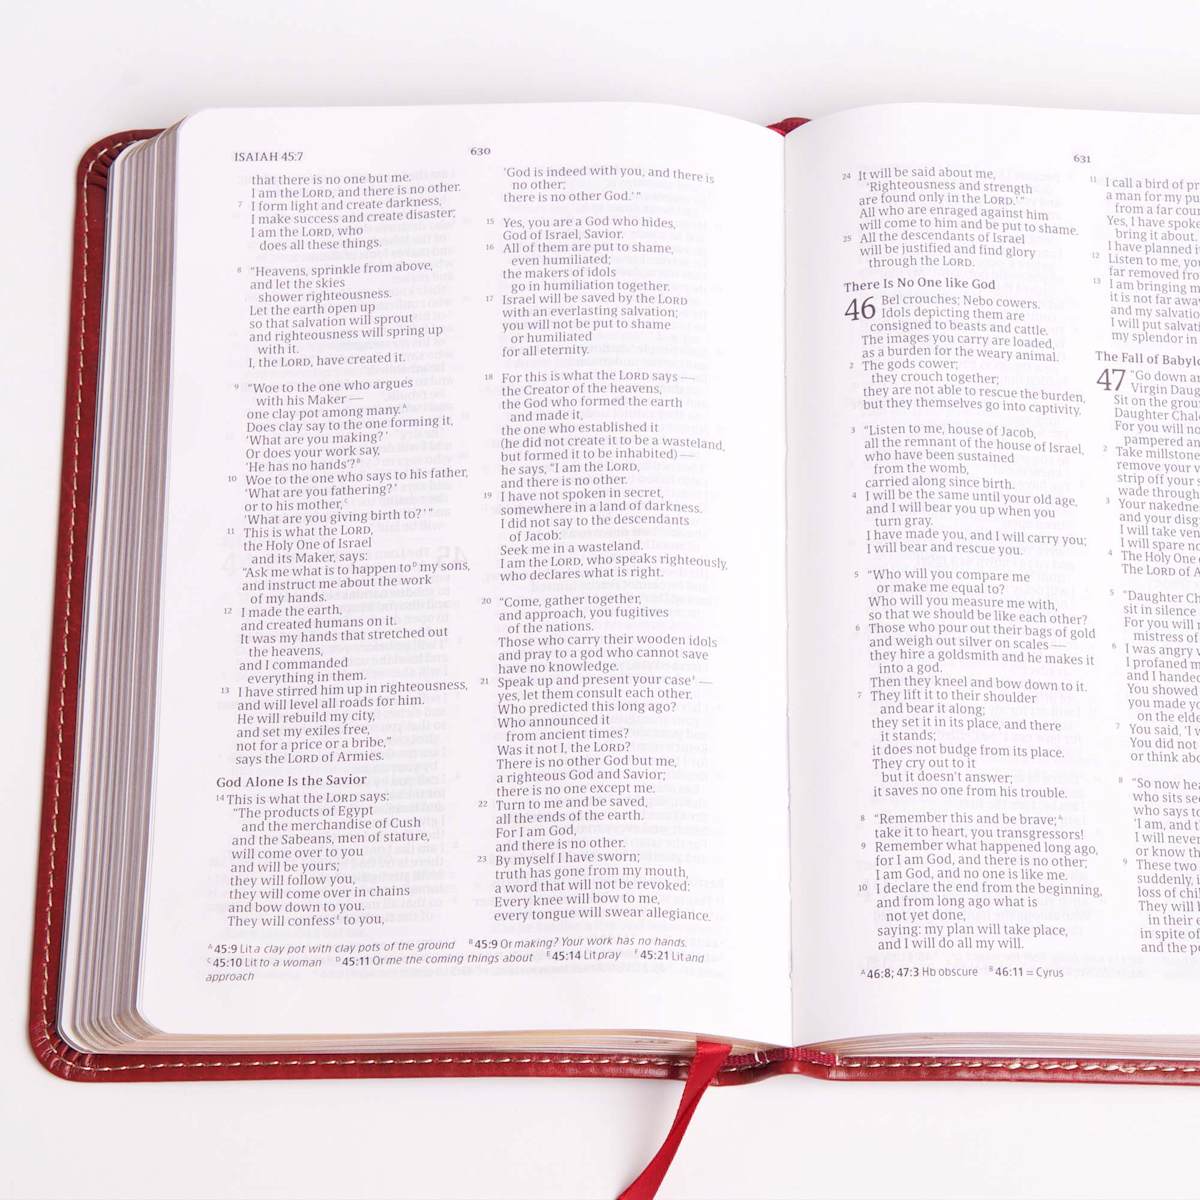 ISAIAH 45:7
630
that there is no one but me.
I am the LORD, and there is no other.
7 I form light and create darkness,
I make success and create disaster;
I am the LORD, who
does all these things.
8 “Heavens, sprinkle from above,
and let the skies
shower righteousness.
Let the earth open up
so that salvation will sprout
and righteousness will spring up
with it.
I, the LORD, have created it.
9 “Woe to the one who argues
with his Maker —
one clay pot among many.A
Does clay say to the one forming it,
‘What are you making?’
Or does your work say,
‘He has no hands’?B
10 Woe to the one who says to his father,
‘What are you fathering?’
or to his mother,C
‘What are you giving birth to?’ ”
11 This is what the LORD,
the Holy One of Israel
and its Maker, says:
“Ask me what is to happen toD my sons,
and instruct me about the work
of my hands.
12 I made the earth,
and created humans on it.
It was my hands that stretched out
the heavens,
and I commanded
everything in them.
13 I have stirred him up in righteousness,
and will level all roads for him.
He will rebuild my city,
and set my exiles free,
not for a price or a bribe,”
says the LORD of Armies.
God Alone Is the Savior
14 This is what the LORD says:
“The products of Egypt
and the merchandise of Cush
and the Sabeans, men of stature,
will come over to you
and will be yours;
they will follow you,
they will come over in chains
and bow down to you.
They will confessE to you,
‘God is indeed with you, and there is
no other;
there is no other God.’ ”
15 Yes, you are a God who hides,
God of Israel, Savior.
16 All of them are put to shame,
even humiliated;
the makers of idols
go in humiliation together.
17 Israel will be saved by the LORD
with an everlasting salvation;
you will not be put to shame
or humiliated
for all eternity.
18 For this is what the LORD says —
the Creator of the heavens,
the God who formed the earth
and made it,
the one who established it
(he did not create it to be a wasteland,
but formed it to be inhabited) —
he says, “I am the LORD,
and there is no other.
19 I have not spoken in secret,
somewhere in a land of darkness.
I did not say to the descendants
of Jacob:
Seek me in a wasteland.
I am the LORD, who speaks righteously,
who declares what is right.
20 “Come, gather together,
and approach, you fugitives
of the nations.
Those who carry their wooden idols
and pray to a god who cannot save
have no knowledge.
21 Speak up and present your caseF —
yes, let them consult each other.
Who predicted this long ago?
Who announced it
from ancient times?
Was it not I, the LORD?
There is no other God but me,
a righteous God and Savior;
there is no one except me.
22 Turn to me and be saved,
all the ends of the earth.
For I am God,
and there is no other.
23 By myself I have sworn;
truth has gone from my mouth,
a word that will not be revoked:
Every knee will bow to me,
every tongue will swear allegiance.
A 45:9 Lit a clay pot with clay pots of the ground B 45:9 Or making? Your work has no hands.
C 45:10 Lit to a woman D 45:11 Or me the coming things about E 45:14 Lit pray F 45:21 Lit and
approach
631
24 It will be said about me,
‘Righteousness and strength
are found only in the LORD.’ ”
All who are enraged against him
will come to him and be put to shame.
25 All the descendants of Israel
will be justified and find glory
through the LORD.
There Is No One like God
46 Bel crouches; Nebo cowers.
Idols depicting them are
consigned to beasts and cattle.
The images you carry are loaded,
as a burden for the weary animal.
2 The gods cower;
they crouch together;
they are not able to rescue the burden,
but they themselves go into captivity.
3 “Listen to me, house of Jacob,
all the remnant of the house of Israel,
who have been sustained
from the womb,
carried along since birth.
4 I will be the same until your old age,
and I will bear you up when you
turn gray.
I have made you, and I will carry you;
I will bear and rescue you.
5 “Who will you compare me
or make me equal to?
Who will you measure me with,
so that we should be like each other?
6 Those who pour out their bags of gold
and weigh out silver on scales —
they hire a goldsmith and he makes it
into a god.
Then they kneel and bow down to it.
7 They lift it to their shoulder
and bear it along;
they set it in its place, and there
it stands;
it does not budge from its place.
They cry out to it
but it doesn’t answer;
it saves no one from his trouble.
8 “Remember this and be brave;A
take it to heart, you transgressors!
9 Remember what happened long ago,
for I am God, and there is no other;
I am God, and no one is like me.
10 I declare the end from the beginning,
and from long ago what is
not yet done,
saying: my plan will take place,
and I will do all my will.
A 46:8; 47:3 Hb obscure B 46:11 = Cyrus
11 I call a bird of
a man for my
from a far
Yes, I have
bring it about.
I have planned
12 Listen to me,
far removed
13 I am bringing
it is not far
and my
I will put
my splendor in
The Fall of
47 “Go down
Virgin
Sit on the
Daughter
For you will
pampered
2 Take
remove your
strip off your
wade through
3 Your
and your
I will take
I will spare
4 The Holy One
The LORD of
5 “Daughter
sit in silence
For you will
mistress of
6 I was angry
I profaned
and I handed
You showed
you made
on the
7 You said, ‘I
You did not
or think
8 “So now
who sits
who says
‘I am, and
I will never
or know
9 These two
suddenly,
loss of
They will
in their
in spite of
and the